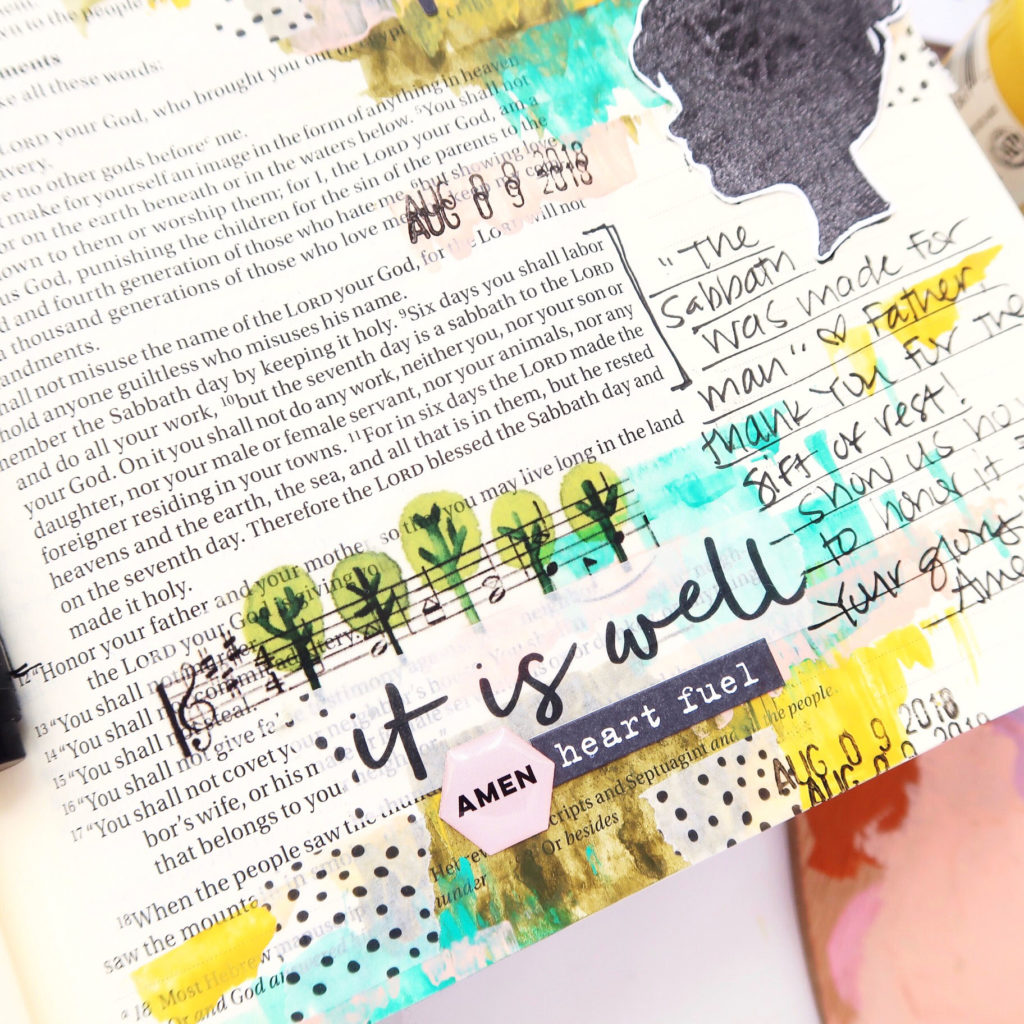 own to the people
ments
all these words:
LORD your God, who brought you out of Egypt
avery.
no other gods before me.
make for yourself an image in the form of anything in heaven
or on the earth beneath or in the waters below. ⁵You shall not
down to them or worship them; for I, the LORD your God, am a
us God, punishing the children for the sin of the parents to the
d and fourth generation of those who hate me, ⁶but showing love
thousand generations of those who love me
andments.
hall not misuse the name of the LORD your God, for the LORD will not
hold anyone guiltless who misuses his name.
member the Sabbath day by keeping it holy. ⁹Six days you shall labor
and do all your work, ¹⁰but the seventh day is a sabbath to the LORD
your God. On it you shall not do any work, neither you, nor your son or
daughter, nor your male or female servant, nor your animals, nor any
foreigner residing in your towns. ¹¹For in six days the LORD made the
heavens and the earth, the sea, and all that is in them, but he rested
on the seventh day. Therefore the LORD blessed the Sabbath day and
made it holy.
¹²"Honor your father and your mother, so that you may live long in the land
the LORD your God is giving yo
¹³"You shall not murder.
¹⁴"You shall not commit adultery.
¹⁵"You shall not steal.
¹⁶"You shall not give fa
¹⁷"You shall not covet
bor's wife, or his m
that belongs to your neighbor."
¹⁸When the people saw the thunder
saw the mountain
a 18 Most Hebrew manuscripts and Septuagint and
Or and God
Hebrew
Or besides
the people.
AUG 09 2018
AUG 09 2018
"The
Sabbath
was made for
man" ♡ Father,
thank you for the
gift of rest!
show us how
to honor it
Your glory
Ame
it is well
heart fuel
AMEN
AUG 09 2018
AUG 09 2018